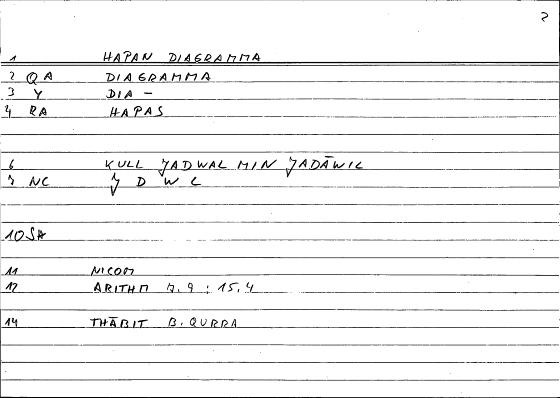 2
1 HAPAN DIAGRAMMA
2 QA DIAGRAMMA
3 Y DIA -
4 RA HAPAS
6 KULL JADWAL MIN JADĀWIL
7 NC J D W L
10 SA
11 NICOM
12 ARITHM 7.9 : 15.4
14 THĀBIT B. QURRA